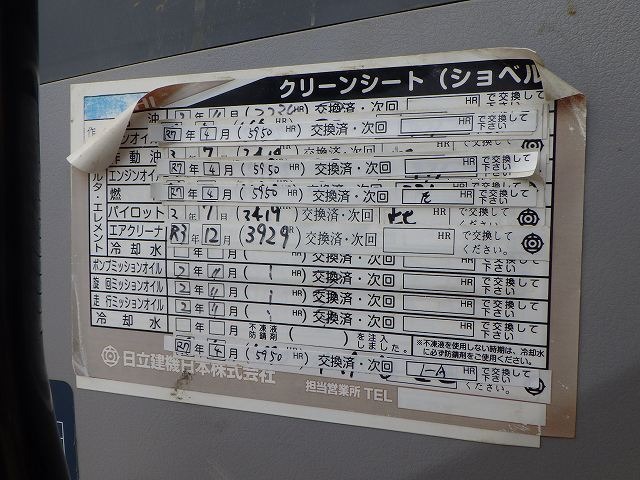 クリーンシート（ショベル
油 2年11月(2230HR)交換済・次回 HRで交換して下さい
エンジンオイル R7年4月(5950HR)交換済・次回 HRで交換して下さい
作動油 7月(2419
エンジンオイル R7年4月(5950HR)交換済・次回 HRで交換して下さい
燃 R7年4月(5950HR)交換済・次回 HRで交換して下さい
パイロット 2年7月(2419HR)交換済・次回 HRで交換してください。
エアクリーナ R3年12月(3929HR)交換済・次回 HRで交換してください。
ルタ・エレメント
冷却水 年 月
ポンプミッションオイル 2年11月( )交換済・次回 HRで交換して下さい
旋回ミッションオイル 2年11月( )交換済・次回 HRで交換して下さい
走行ミッションオイル 2年11月( )交換済・次回 HRで交換して下さい
冷却水 年 月 不凍液 防錆剤 ( )を注入しました。 ※不凍液を使用しない時期は、冷却水に必ず防錆剤をご使用ください。
R7年4月(5950HR)交換済・次回 HRで交換して下さい
ください。
日立建機日本株式会社 担当営業所 TEL